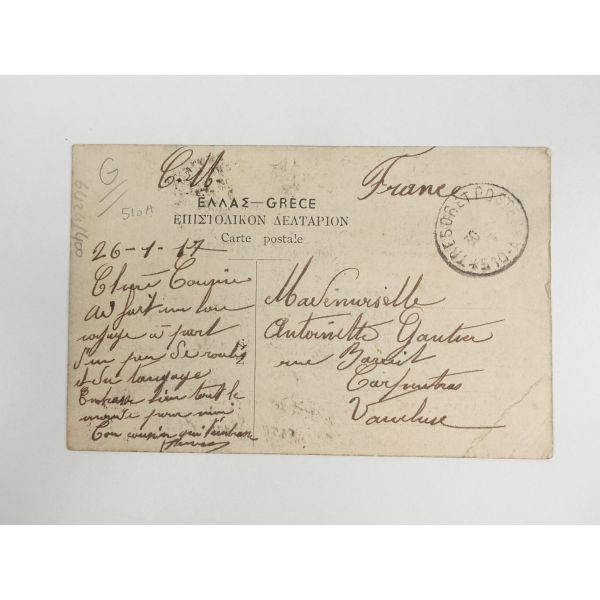 C.M.
France
ΕΛΛΑΣ—GRÈCE
ΕΠΙΣΤΟΛΙΚΟΝ ΔΕΛΤΑΡΙΟΝ
Carte postale
G
510A
TRESOR ET POSTES
30
26-1-17
Chère
Ai fait un bon
voyage à part
un peu de roulis
et du tangage
Embrasse bien tout le
monde pour moi
Ton cousin qui t'embrasse
Mademoiselle
Antoinette Gautier
rue
Carpentras
Vaucluse